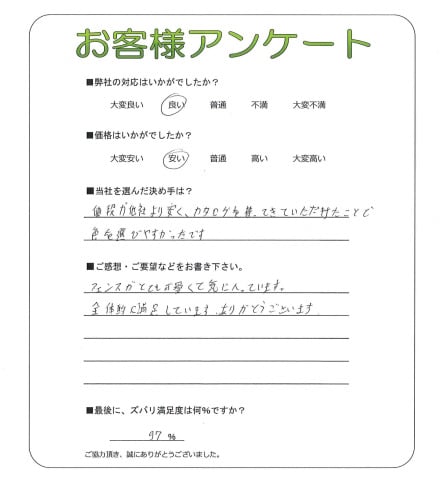 お客様アンケート
■弊社の対応はいかがでしたか?
大変良い 良い 普通 不満 大変不満
■価格はいかがでしたか?
大変安い 安い 普通 高い 大変高い
■当社を選んだ決め手は?
値段が他社より安く、カタログを持ってきていただけたことで
色を選びやすかったです
■ご感想・ご要望などをお書き下さい。
フェンスがとても良くて気に入っています。
全体的に満足しています。ありがとうございます。
■最後に、ズバリ満足度は何%ですか?
97 %
ご協力頂き、誠にありがとうございました。